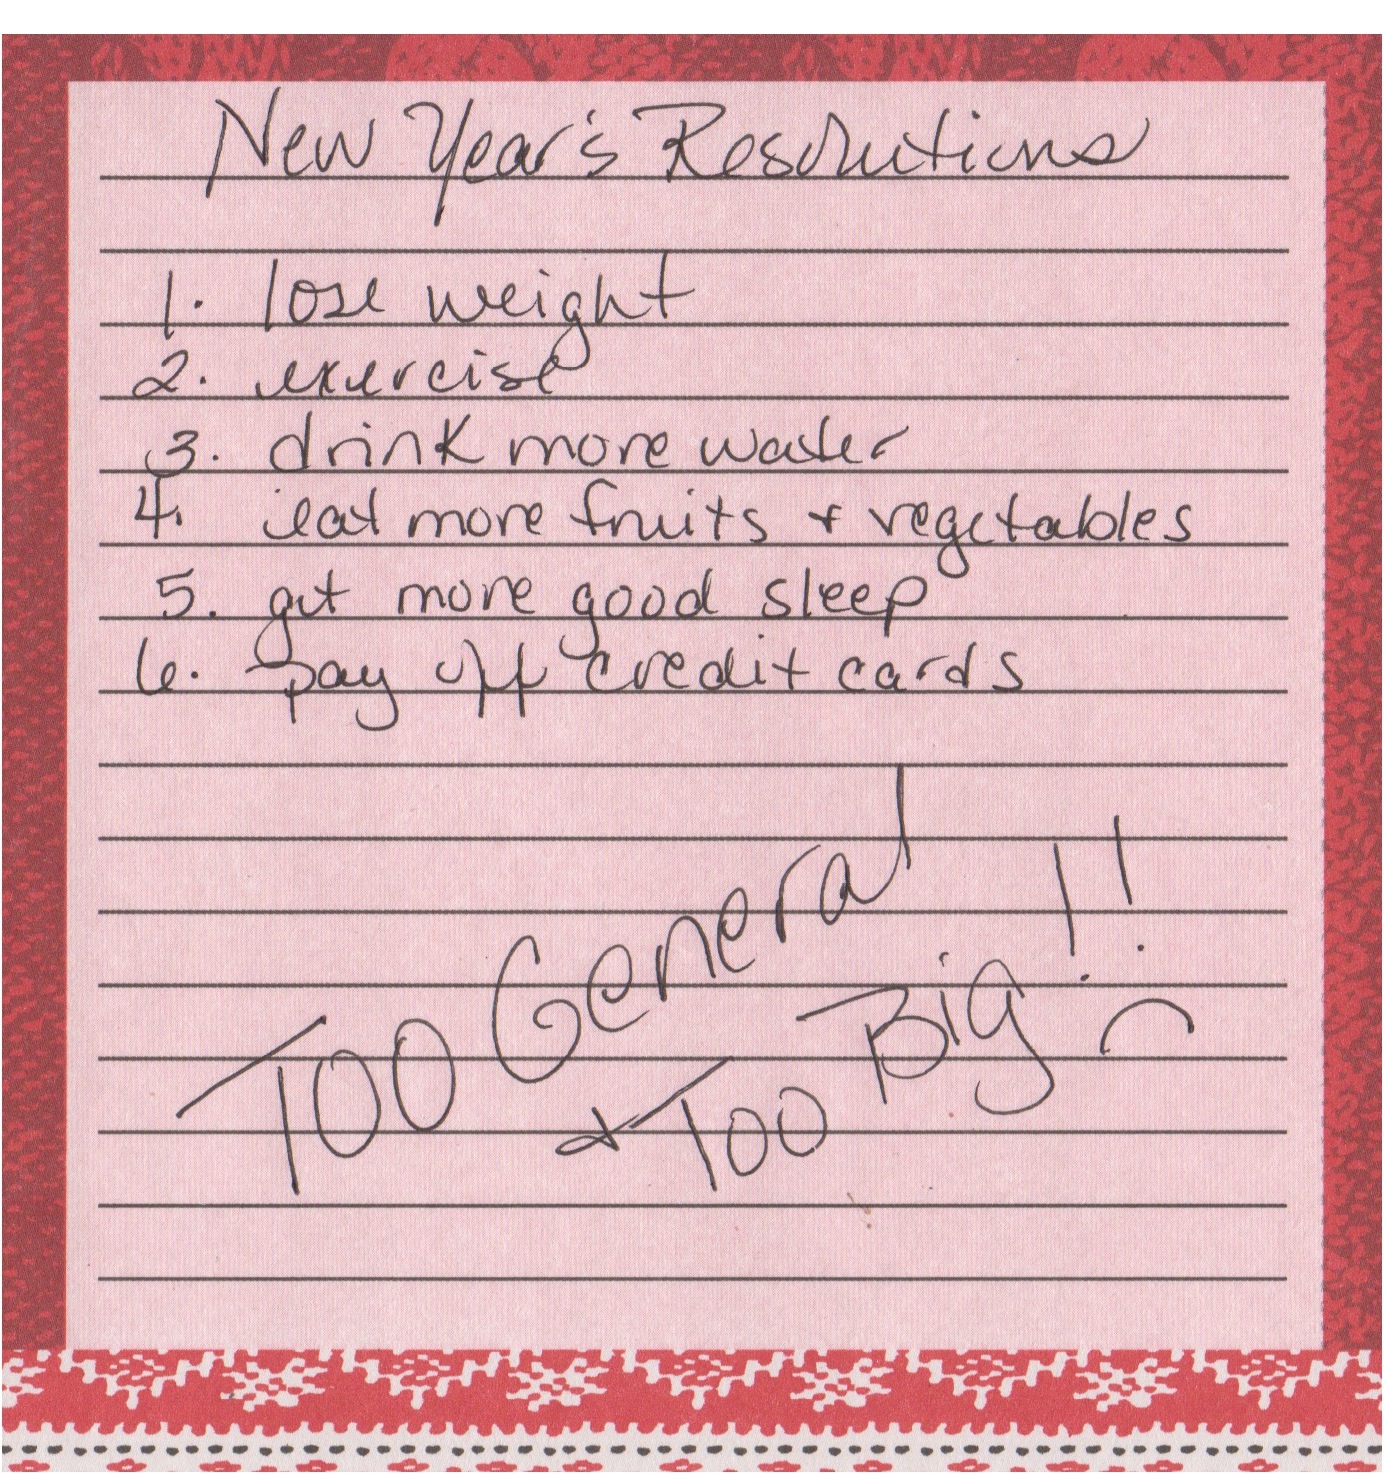 New Year's Resolutions
1. lose weight
2. exercise
3. drink more water
4. eat more fruits + vegetables
5. get more good sleep
6. pay off credit cards
Too General
+ Too Big!!